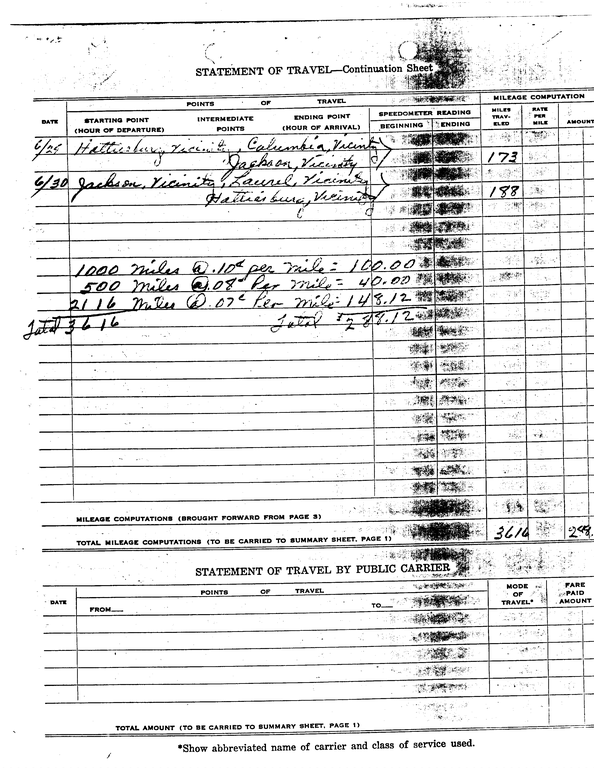 STATEMENT OF TRAVEL—Continuation Sheet
POINTS OF TRAVEL
MILEAGE COMPUTATION
DATE
STARTING POINT (HOUR OF DEPARTURE)
INTERMEDIATE POINTS
ENDING POINT (HOUR OF ARRIVAL)
SPEEDOMETER READING
BEGINNING ENDING
MILES TRAV- ELED
RATE PER MILE
AMOUNT
6/29 Hattiesburg, Vicinity, Columbia, Vicinity
Jackson, Vicinity 173
6/30 Jackson, Vicinity, Laurel, Vicinity
Hattiesburg, Vicinity 188
1000 Miles @ .10¢ per Mile = 100.00
500 Miles @ .08¢ Per Mile = 40.00
2116 Miles @ .07¢ Per Mile = 148.12
Total 3616 Total $288.12
MILEAGE COMPUTATIONS (BROUGHT FORWARD FROM PAGE 3)
TOTAL MILEAGE COMPUTATIONS (TO BE CARRIED TO SUMMARY SHEET, PAGE 1) 3616
STATEMENT OF TRAVEL BY PUBLIC CARRIER
DATE
POINTS OF TRAVEL
FROM TO
MODE OF TRAVEL*
FARE PAID AMOUNT
TOTAL AMOUNT (TO BE CARRIED TO SUMMARY SHEET, PAGE 1)
*Show abbreviated name of carrier and class of service used.